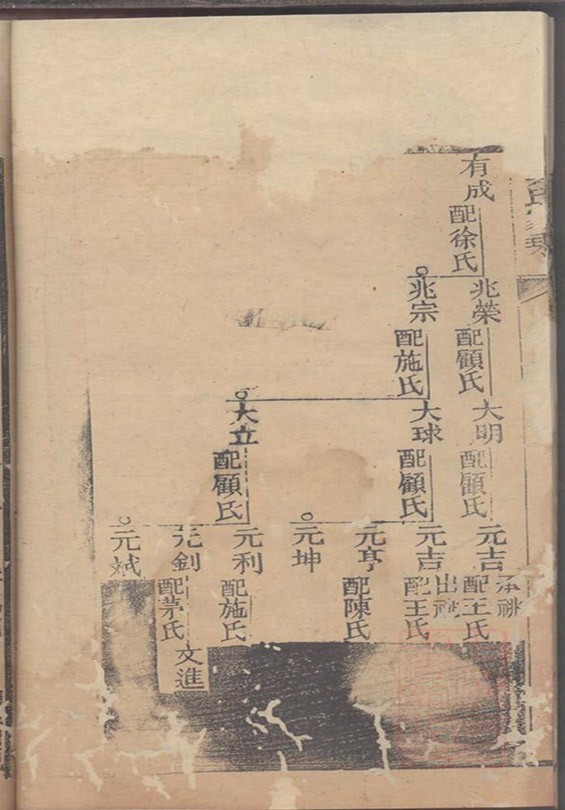 有成
配徐氏
兆榮
配顧氏
兆宗
配施氏
大明
配顧氏
大球
配顧氏
大立
配顧氏
元吉
承祧
配王氏
元吉
出祧
配王氏
元亨
配陳氏
元坤
元利
配施氏
元釗
配茅氏
文進
元斌